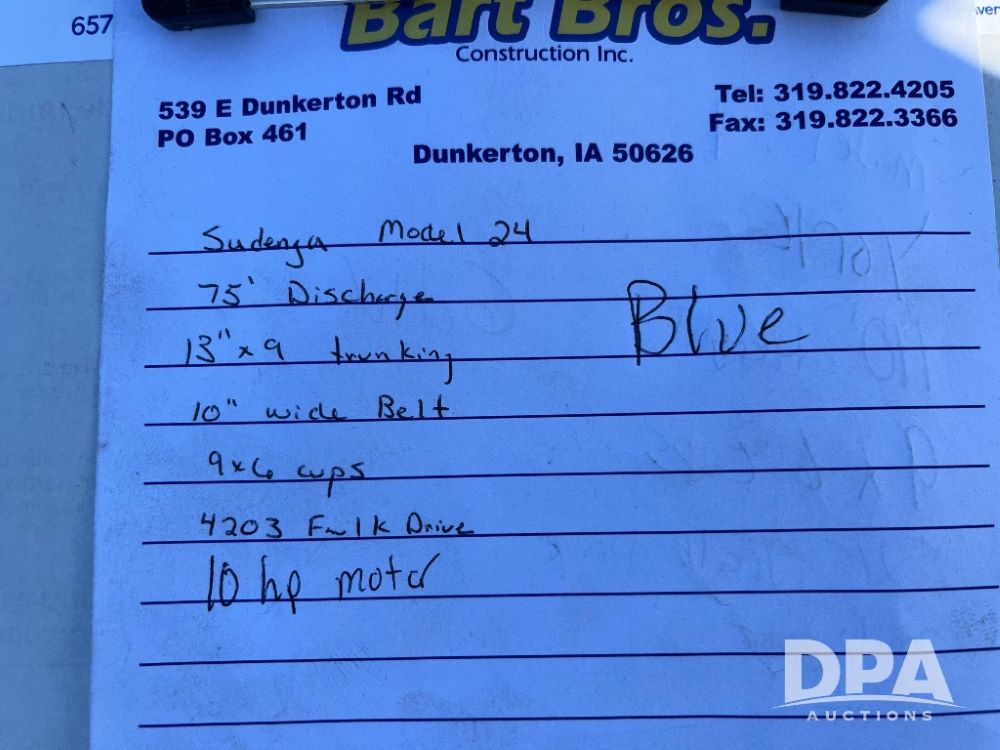 657
Bart Bros.
Construction Inc.
539 E Dunkerton Rd
PO Box 461
Tel: 319.822.4205
Fax: 319.822.3366
Dunkerton, IA 50626
Sudenga Model 24
75' Discharge
13" x 9 trunking
Blue
10" wide Belt
9x6 cups
4203 Falk Drive
10 hp motor
DPA
AUCTIONS